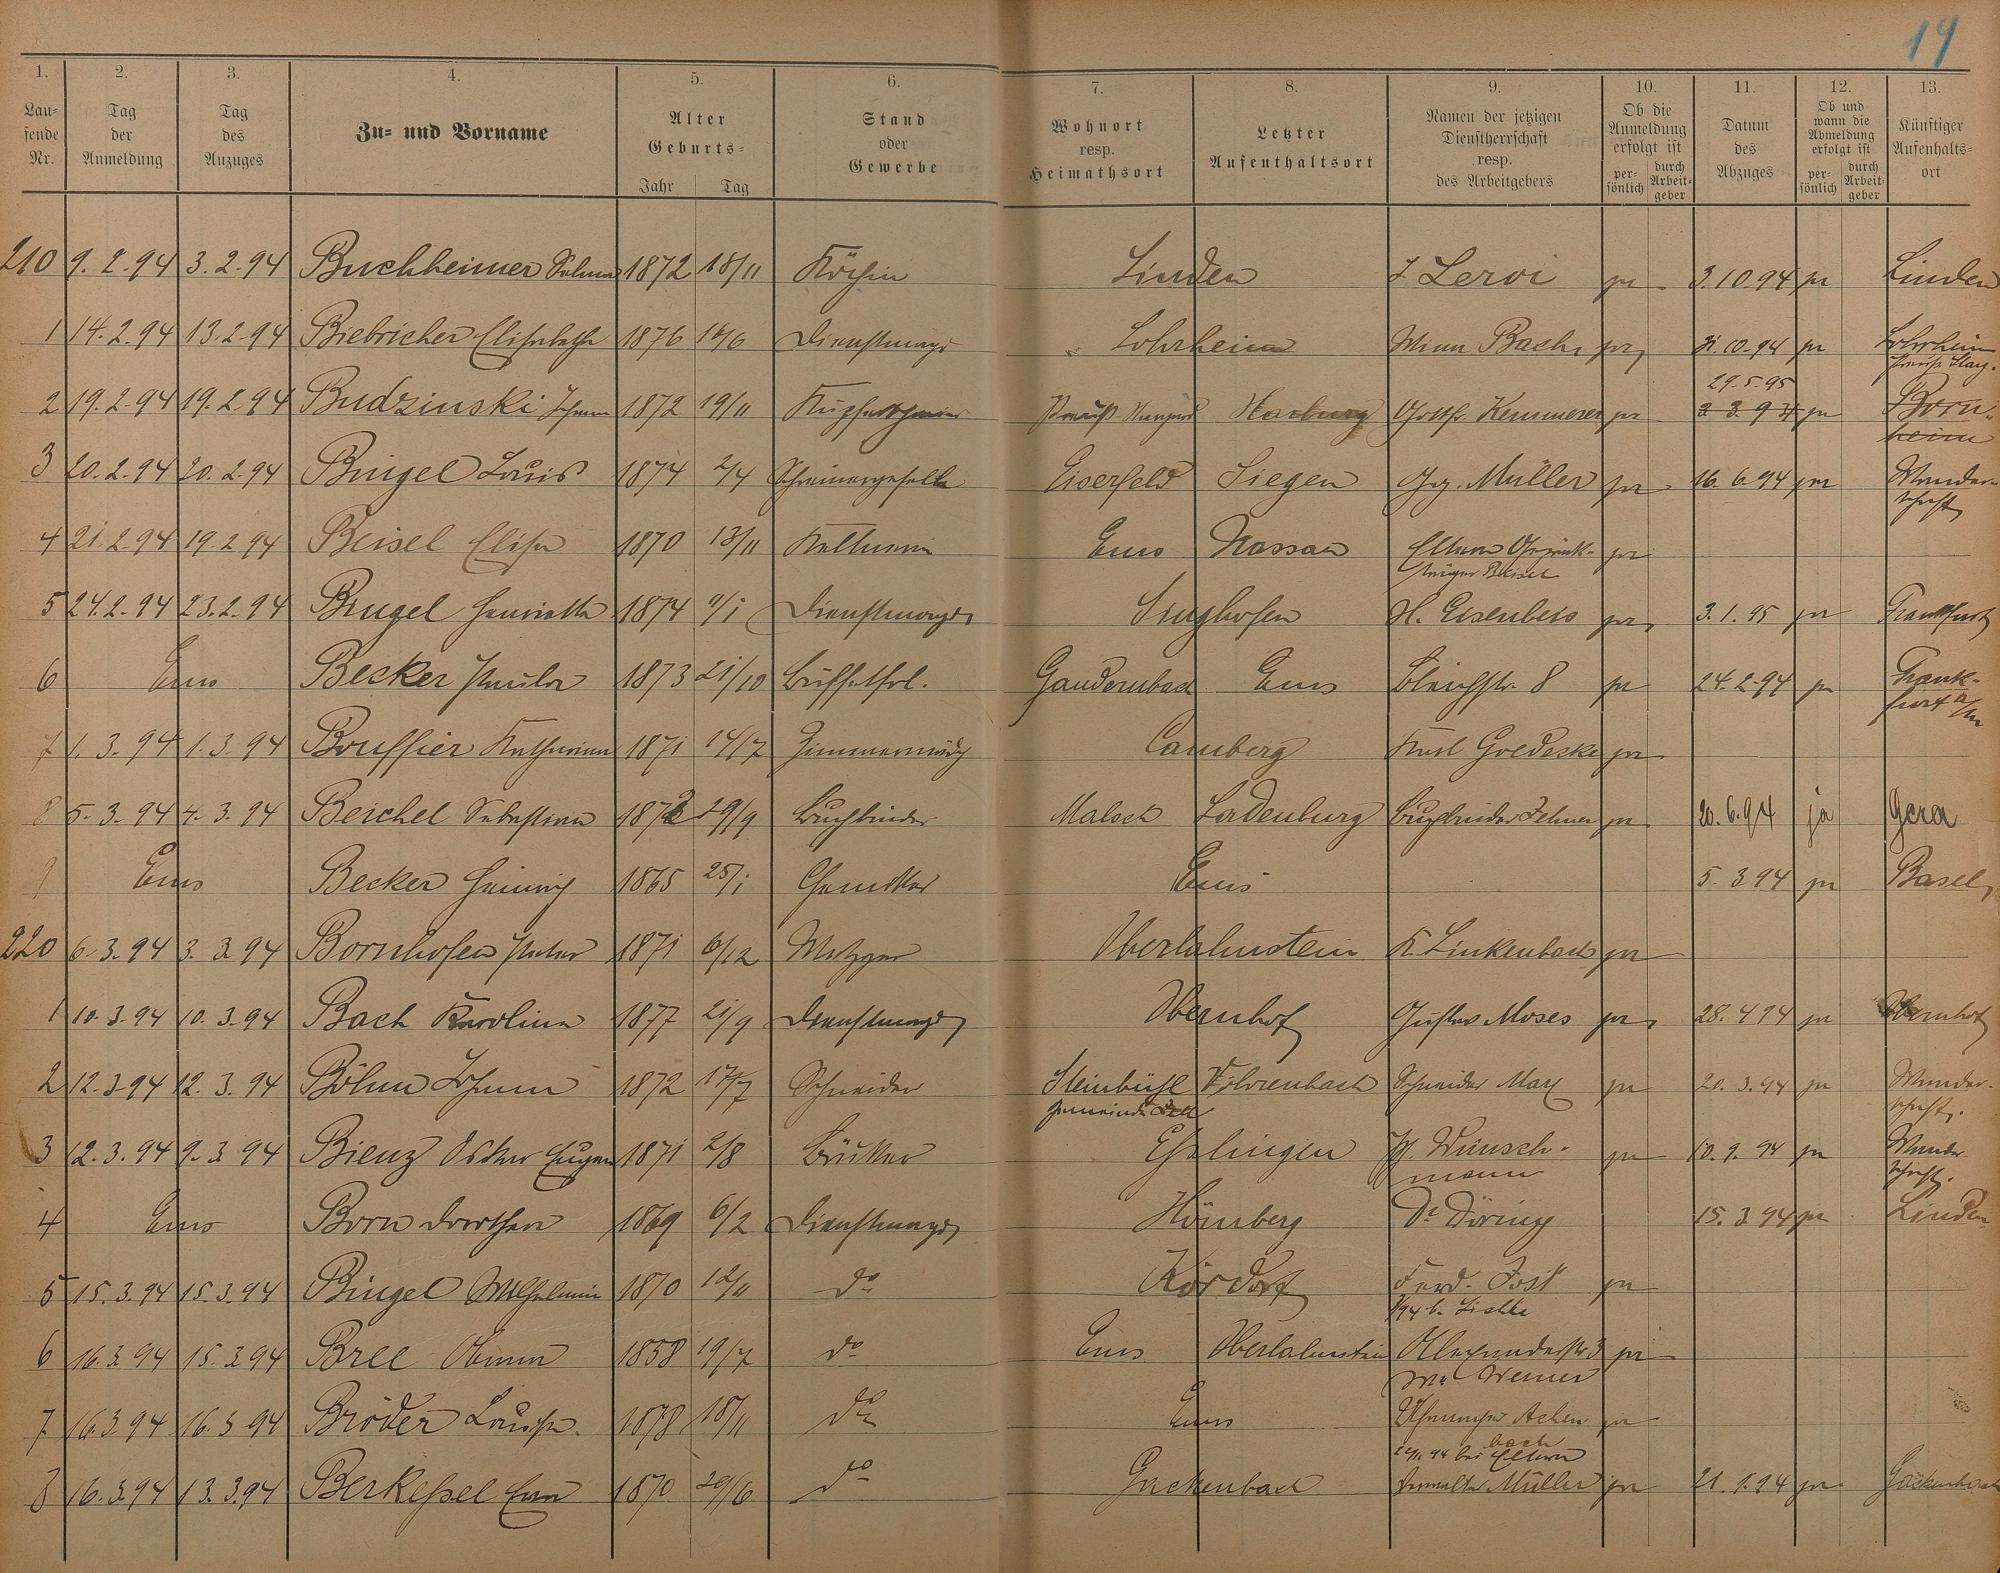 19
1. 2. 3. 4. 5. 6. 7. 8. 9. 10. 11. 12. 13.
Lau-
fende
Nr.
Tag
der
Anmeldung
Tag
des
Anzuges
Zu- und Vorname
Alter
Geburts-
Jahr Tag
Stand
oder
Gewerbe
Wohnort
resp.
Heimathsort
Letzter
Aufenthaltsort
Namen der jetzigen
Dienstherrschaft
resp.
des Arbeitgebers
Ob die
Anmeldung
erfolgt ist
per-
sönlich
durch
Arbeit-
geber
Datum
des
Abzuges
Ob und
wann die
Abmeldung
erfolgt ist
per-
sönlich
durch
Arbeit-
geber
Künftiger
Aufenthalts-
ort
210 9.2.94 3.2.94 Buchheimer 1872 18/11 Köchin Linden J. Leroi ja 3.10.94 ja Linden
1 14.2.94 13.2.94 Biebricher Elisabethe 1876 16/6 Dienstmagd Lohrheim Bach ja 31.10.94 ja Lohrheim
29.5.95
2 19.2.94 19.2.94 Budzinski Johann 1872 19/11 Harburg Gottfr. Kemmerer ja 3.3.94 ja Born-
heim
3 20.2.94 20.2.94 Bingel Louis 1874 2/4 Schreinergeselle Eiserfeld Siegen Gg. Müller ja 16.6.94 ja Wander-
schaft
4 21.2.94 19.2.94 Beisel Elise 1870 13/11 Kellnerin Ems Nassau Eltern Gepäck- ja
träger Beisel
5 24.2.94 23.2.94 Bingel Henriette 1874 Dienstmagd Singhofen H. Eisenbeis ja 3.1.95 ja Frankfurt
6 Ems Becker Paula 1873 21/10 Büffetfrl. Gaudernbach Ems Bleichstr. 8 ja 24.2.94 ja Frank-
furt a/M
7 1.3.94 1.3.94 Bouffier Katharina 1871 14/7 Zimmermädch Camberg Karl Goedecke ja
8 5.3.94 4.3.94 Beichel Sebastian 1872 29/9 Buchbinder Malsch Ladenburg Buchbinder ja 20.6.94 ja Gera
9 Ems Becker Heinrich 1865 25/1 Chemiker Ems 5.3.94 ja Basel
220 6.3.94 3.3.94 Bornhofen Peter 1871 6/12 Metzger Oberlahnstein K. Linkenbach ja
1 10.3.94 10.3.94 Bach Karolina 1877 21/9 Dienstmagd Obernhof Gustav Moses ja 28.4.94 ja Obernhof
2 12.3.94 12.3.94 Böhm Johann 1872 17/7 Schneider Steinbühl Schneider Marx ja 20.3.94 ja Wander-
Gemeinde Zell schaft.
3 12.3.94 9.3.94 Bienz Oskar Eugen 1871 2/8 Eßlingen Wünsch- ja 10.9.94 ja Wander
mann schaft.
4 Ems Born Dorothea 1869 6/2 Dienstmagd Hömberg Dr Döring 15.3.94 ja Linden
5 15.3.94 15.3.94 Bingel Wilhelmine 1870 12/11 do Kördorf Ferd. Jost ja
6 16.3.94 15.3.94 Bree Anna 1858 19/7 do Ems Oberlahnstein Alexanderstr 3 ja
Werner
7 16.3.94 16.3.94 Bröder Louise. 1878 18/11 do Ems Uhrmacher Achen ja
bach
bei Eltern
8 16.3.94 13.3.94 Berkeßel Eva 1870 29/6 do Gackenbach Verwalter Müller ja 21.9.94 ja Gackenbach